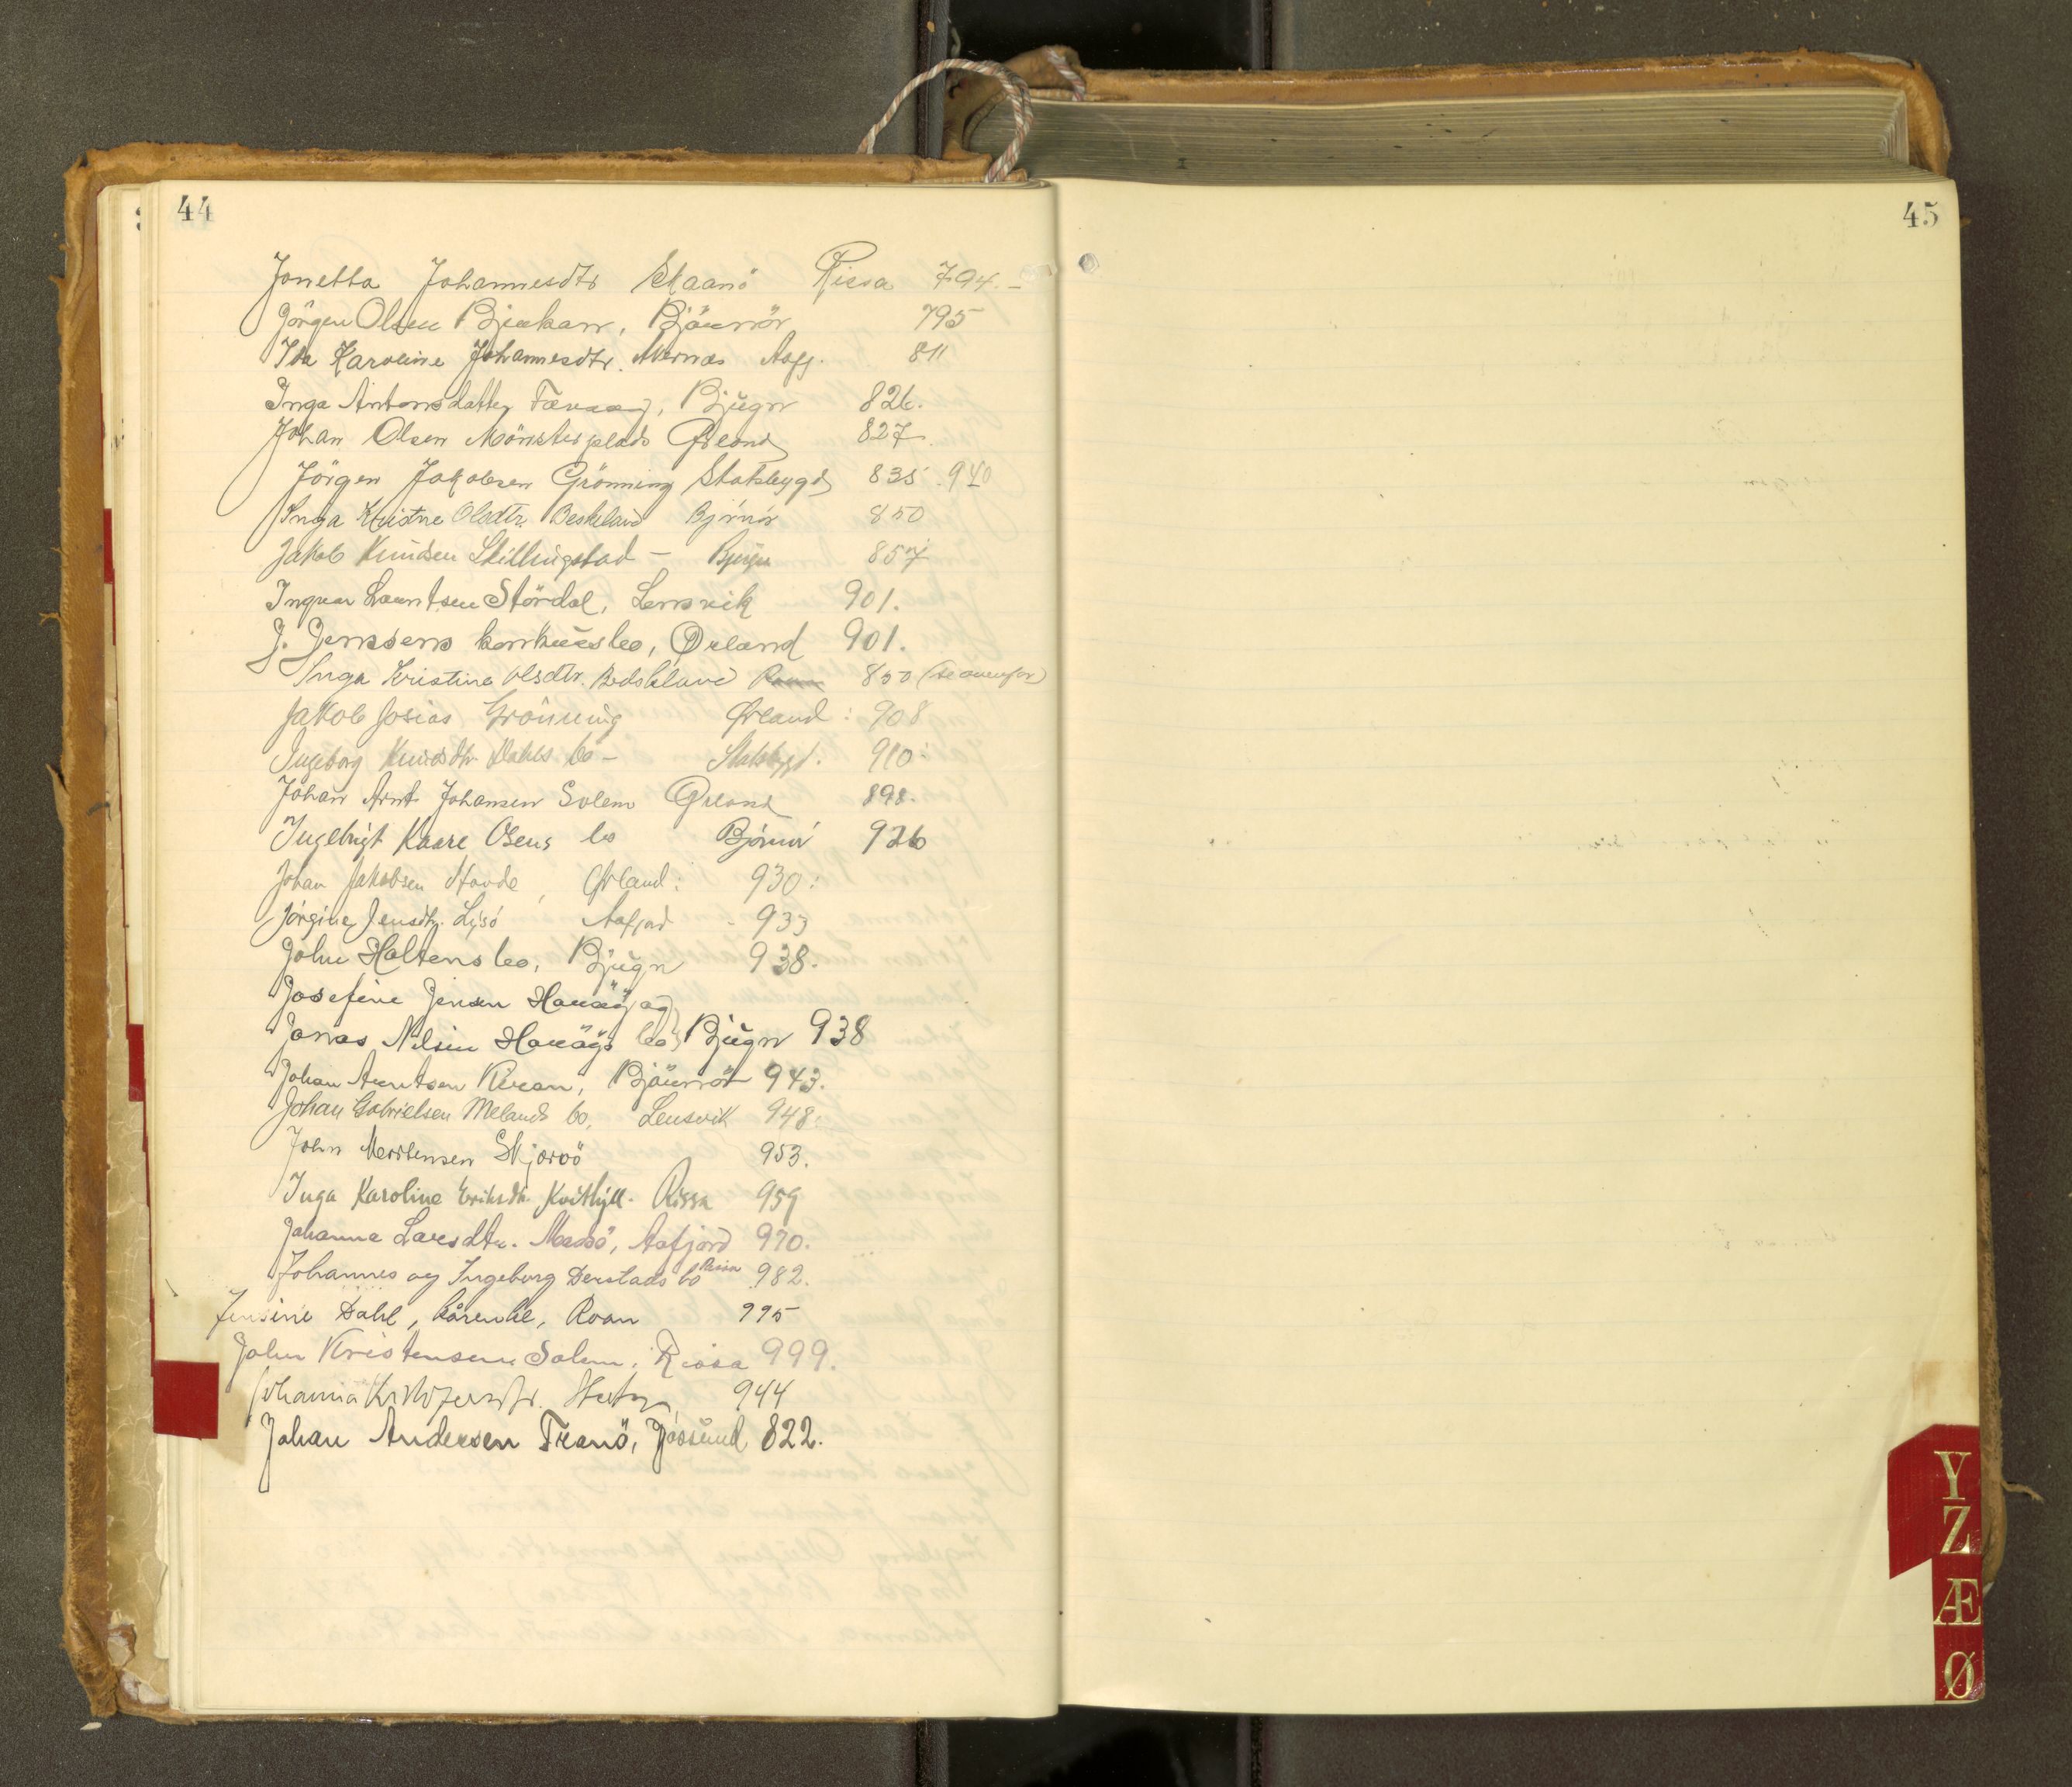 44
Jonetta Johannesdtr Skaanö Rissa 794.-
Jörgen Olsen Bjørkan, Bjönör 795
Ida Karoline Johannesdtr. Mørnæs Aafj. 811
Inga Antonsdatter, Bjugn 826.
Johan Olsen Mönsterplads Ørland 827.
Jörgen Jakobsen Grönning Statsbygd 835. 940
Inga Kristne Olsdtr. Beskeland Björnör 850
Jakob Knudsen Skillingstad — Bjugn 857
Ingvar Lorntsen Stördal, Lensvik 901.
J. Jenssens konkursbo, Ørland 901.
Inga Kristine Olsdtr. 850 (se ovenfor)
Jakob Josias Grönning Ørland : 908
Ingeborg Knudsdtr. Dahls bo - Statsbygd. 910:
Johan Arnt Johansen Solem Ørland 898.
Ingebrigt Kaare Osens bo Björnör 926
Johan Jakobsen Hovde, Ørland : 930 :
Jörgine Jensdtr. Lysö Aafjord - 933
John Holtens bo, Bjugn 938.
Josefine Jensen og
Jonas Nilsen bo, Bjugn 938
Johan Arntsen Kiran, Bjöurnör 943.
Johan Gabrielsen Melands bo, Lensvik 948:
John Mortensen Skjærvö 953.
Inga Karoline Eriksdtr. Kvithyll. Rissa 959
Johanna Larsdtr. Madsö, Aafjord 970.
Johannes og Ingeborg Derstads bo Rissa 982.
Jensine Dahl, Roan 995
John Kristensen Solem, Rissa 999.
Johanna 944
Johan Andersen Tranö, Jössund 822.
45
Y
Z
Æ
Ø